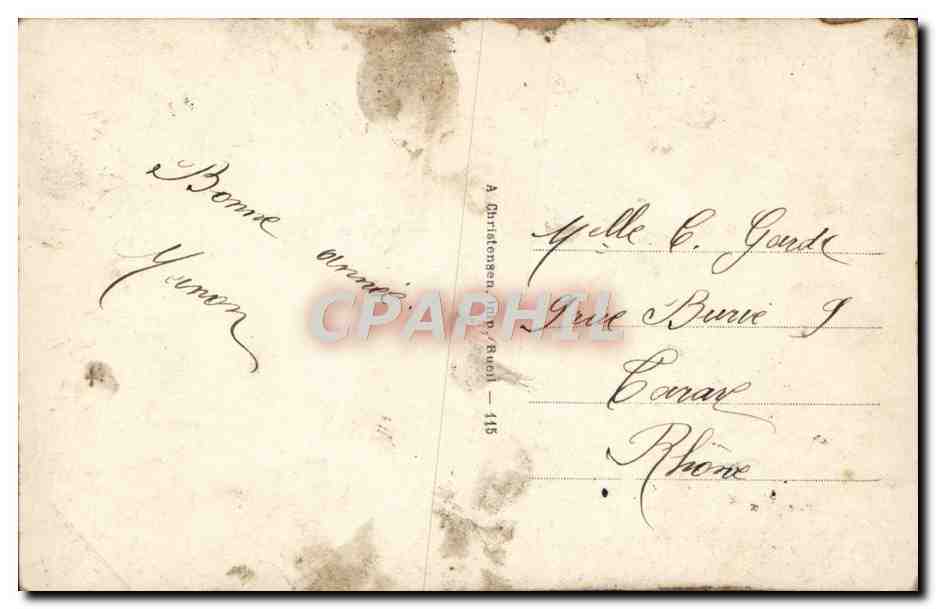 Bonne année.
Manon
A Christensen, imp, Rueil — 115
CPAPHIL
Melle C. Garde
9 rue Burie 9
Tarare
Rhône